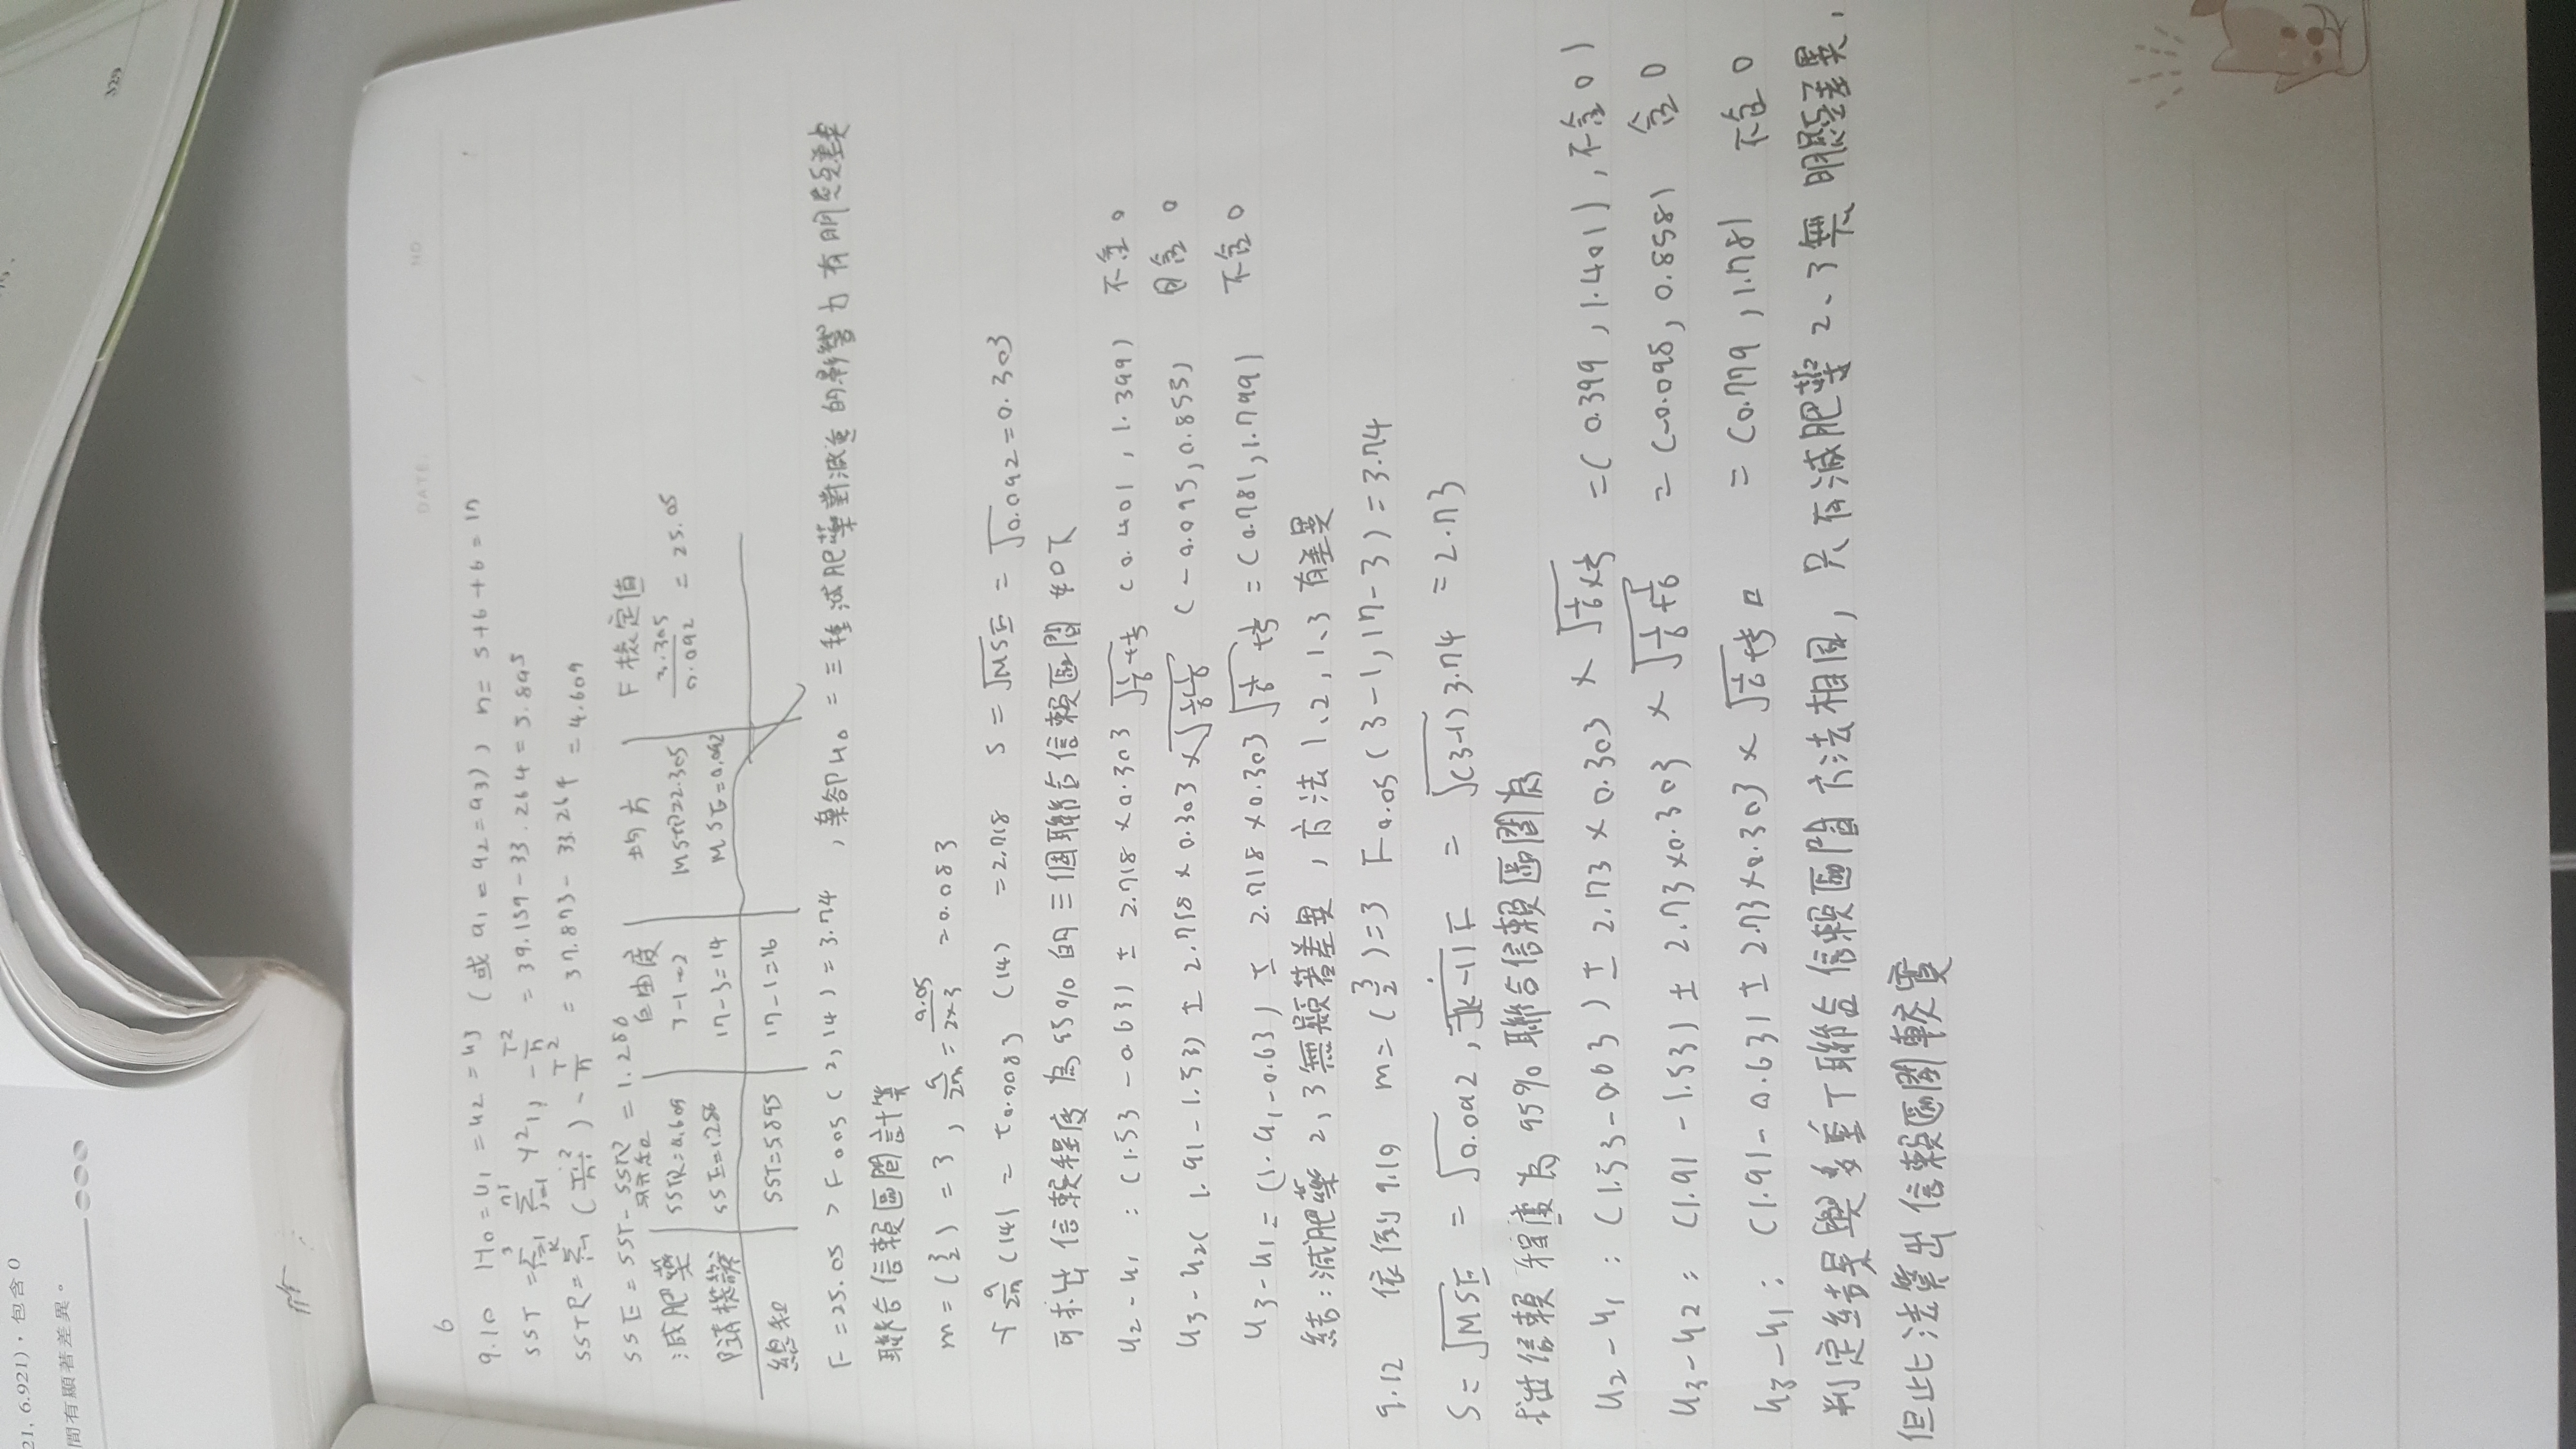 21, 6.921)，包含0
間有顯著差異。
329
DATE. / NO.
6
9.10 H0=u1=u2=u3 (或a1=a2=a3), n=5+6+6=17
SST=Σ Σ y²ij - T²/n = 39.159-33.264=5.895
SSTR=Σ(Ti²/ni)-T²/n = 37.873-33.264 =4.609
SSE=SST-SSTR=1.286
自由度 均方 F檢定值
減肥藥 SSTR=4.609 3-1=2 MSTR=2.305 2.305/0.092 =25.05
隨機誤 SSE=1.286 17-3=14 MSE=0.092
總和 SST=5.895 17-1=16
F=25.05 > F0.05(2,14)=3.74 ,棄卻H0=三種減肥藥對減重的影響力有明顯差異
聯合信賴區間計算
m=(3 2)=3, a/2m=0.05/2×3 =0.083
a/2m(14)=t0.0083 (14) =2.718 S=√MSE=√0.092=0.303
可求出信賴程度為95%的三個聯合信賴區間如下
u2-u1:(1.53-0.63)±2.718×0.303√1/6+1/5 (0.401,1.399) 不含0
u3-u2(1.91-1.53)±2.718×0.303×√1/6+1/6 (-0.095,0.855) 包含0
u3-u1=(1.91-0.63)±2.718×0.303√1/6+1/5=(0.781,1.799) 不含0
結:減肥藥2,3無顯著差異,方法1、2,1、3有差異
9.12 依例9.10 m=(3 2)=3 F0.05(3-1,17-3)=3.74
S=√MSE=√0.092,√(k-1)F=√(3-1)3.74=2.73
求出信賴程度為95%聯合信賴區間為
u2-u1:(1.53-0.63)±2.73×0.303×√1/6×1/5=(0.399,1.401),不含0)
u3-u2:(1.91-1.53)±2.73×0.303×√1/6+1/6=(-0.098,0.858) 含0
u3-u1:(1.91-0.63)±2.73×0.303×√1/6+1/5 =(0.779,1.781 不含0
判定結果與多重T聯合信賴區間方法相同,只有減肥藥2、3無明顯差異,
但此法算出信賴區間較寬